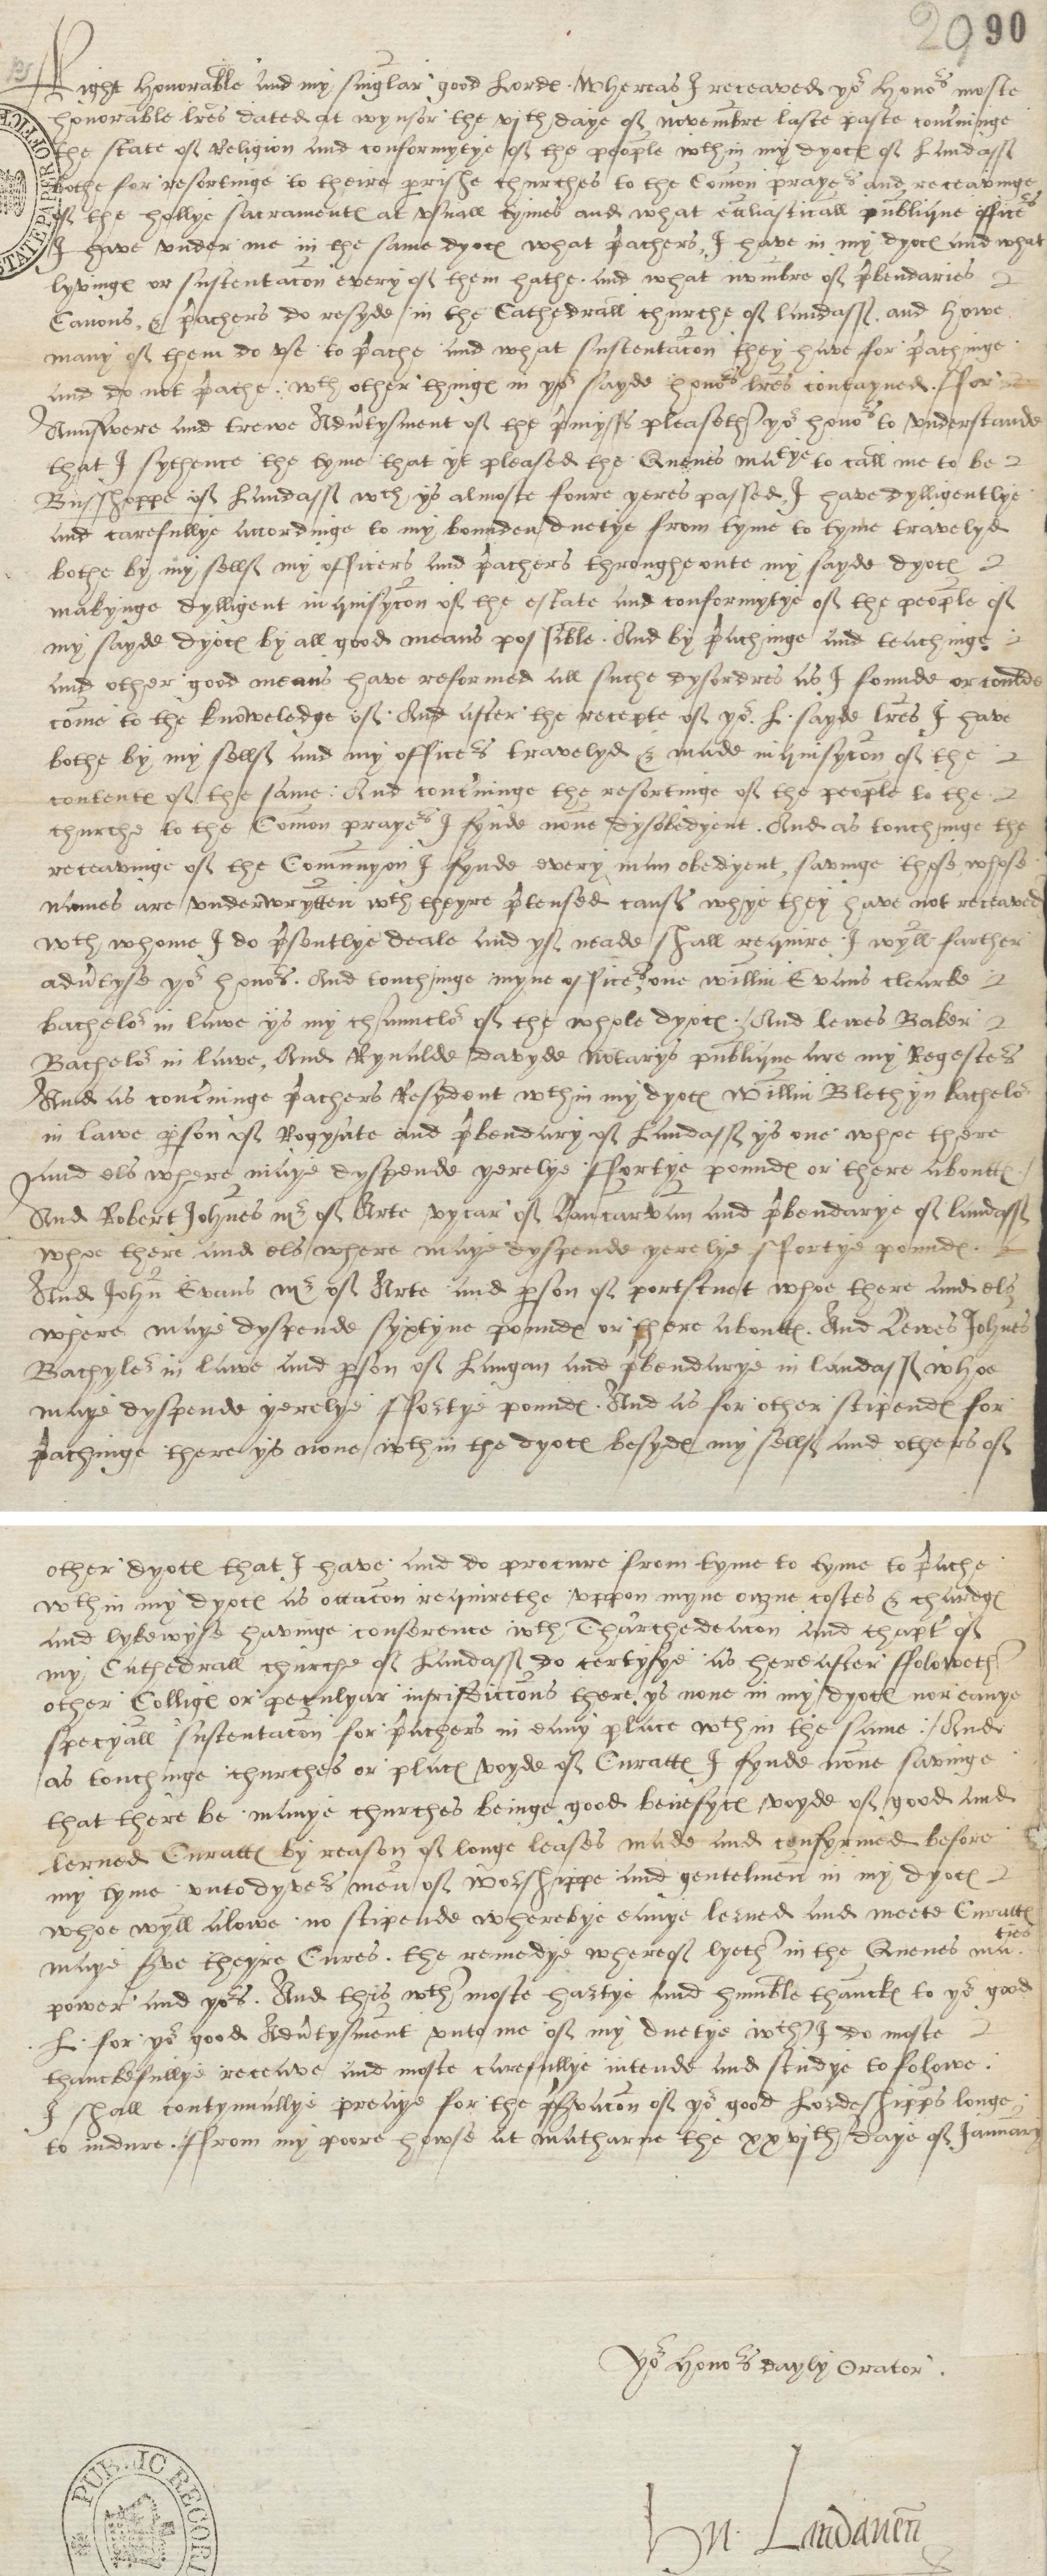 29 90
Right honorable and my singlar good Lorde. Whereas I receaved yor honors moste
honorable lres dated at wynsor the vjth daye of novembre laste paste concninge
the state of Religion and conformytye of the people wthin my dyoces of Landaff
bothe for resortinge to theire prishe churches to the Comon prayers and receavinge
of the hollye sacramentes at vsuall tymes and what eccliasticall publique officers
I have vnder me in the same dyoces what pachers, I have in my dyoces and what
lyvinges or sustentacon every of them hathe. and what nombre of pbendaries
Canons, & pachers do resyde in the Cathedrall churche of landaff. and howe
many of them do vse to pache and what sustentacon they have for pachinge
and do not pache. wth other thinges in yor sayde honors lres contayned. ffor
Aunswere and trewe Advtysment of the pmysses pleaseth yor honors to vnderstande
that I sythence the tyme that yt pleased the Quenes matye to call me to be
Busshoppe of Landaff wch ys almoste foure yeres passed, I have dylligentlye
and carefullye accordinge to my bounden duetye from tyme to tyme travelyd
bothe by my sellf my officers and pachers throughe oute my sayde dyoces
makynge dylligent inquisycon of the estate and conformytye of the people of
my sayde dyoces by all good means possible. And by pachinge and teachinge
and other good means have reformed all suche dysordres as I founde or coulde
come to the knoweledge of. And after the recepte of yor. L. sayde lres I have
bothe by my sellf and my officers travelyd & made inquisycon of the
contentes of the same: And concninge the resortinge of the people to the
churche to the Comon prayers I fynde none dysobedyent. And as touchinge the
receavinge of the Comunyon I fynde every man obedyent, savinge those whose
names are vnderwrytten wth theyre ptensed causes whye they have not receaved
wth whome I do psentlye deale and yf neade shall require I wyll farther
advtyse yor honors. And touchinge myne officers, one willm Evans clearke
bachelor in lawe ys my chauncelor of the whole dyoces. And lewes Baker
Bachelor in lawe, And Rynalde davyde notarys publique are my Regesters
And as concninge pachers Resydent wthin my dyoces Willm Blethyn bachelor
in lawe pson of Rogyate and pbendary of Landaff ys one whoe there
and els where maye dyspende yerelye ffortye poundes or there aboutes.
And Robert Johnes mr of Arte vycar of Lancarvan and pbendarye of landaff
whoe there and els where maye dyspende yerelye ffortye poundes.
And John Evans mr of Arte and pson of portscuet whoe there and els
where maye dyspende syxtyne poundes or there aboutes. And Lewes Johnes
Bachyler in lawe and pson of Langan and pbendarye in landaff whoe
maye dyspende yerelye ffortye poundes. And as for other stipendes for
pachinge there ys none wthin the dyoces besydes my sellf and others of
other dyoces that I have and do procure from tyme to tyme to pache
wthin my dyoces as occacon requirethe vppon myne owne costes & chardges
and lykewyse havinge conference wth Tharchedeacon and chapt of
my Cathedrall churche of Landaff do certyfye as hereafter ffoloweth
other Colliges or peculyar iurisdiccons there ys none in my dyoces nor eanye
specyall sustentacon for pachers in eany place wthin the same: And
as touchinge churches or places voyde of Curattes I fynde none savinge
that there be manye churches beinge good benefyces voyde of good and
lerned Curattes by reason of longe leases made and confyrmed before
my tyme vnto dyvers men of worshippe and gentelmen in my dyoces
whoe wyll alowe no stipende wherebye eanye lerned and meete Curattes
maye sve theyre Cures. the remedye whereof lyeth in the Quenes maties
power and yors. And this wth moste hartye and humble thanckes to yor good
L. for yor good Advtysment vnto me of my duetye wch I do moste
thanckefullye receave and moste carefullye intende and studye to folowe.
I shall contynuallye praye for the psvacon of yor good Lordeshipps longe
to indure. ffrom my poore howse at matharne the xxvjth daye of January
Yor Honors dayly Orator.
Hu. Landaven
PUBLIC RECOR